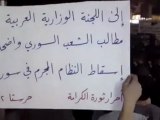 إلى اللجنة الوزارية العربية
مطالب الشعب السوري واضحة
إسقاط النظام المجرم في سوريا
أحرار ثورة الكرامة حرستا